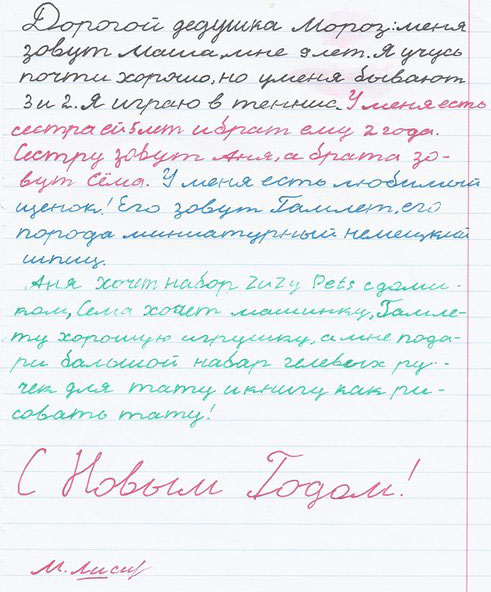 Дорогой дедушка Мороз: меня
зовут Маша, мне 9 лет. Я учусь
почти хорошо, но у меня бывают
3 и 2. Я играю в теннис. У меня есть
сестра ей 5 лет и брат ему 2 года.
Сестру зовут Аня, а брата зо-
вут Сёма. У меня есть любимый
щенок! Его зовут Гамлет, его
порода миниатурный немецкий
шпиц.
Аня хочет набор ZuZy Pets с доми-
ком, Сема хочет машинку, Гамле-
ту хорошую игрушку, а мне пода-
ри большой набар гелевых ру-
чек для тату и книгу как ри-
совать тату!
С Новым Годом!
М.